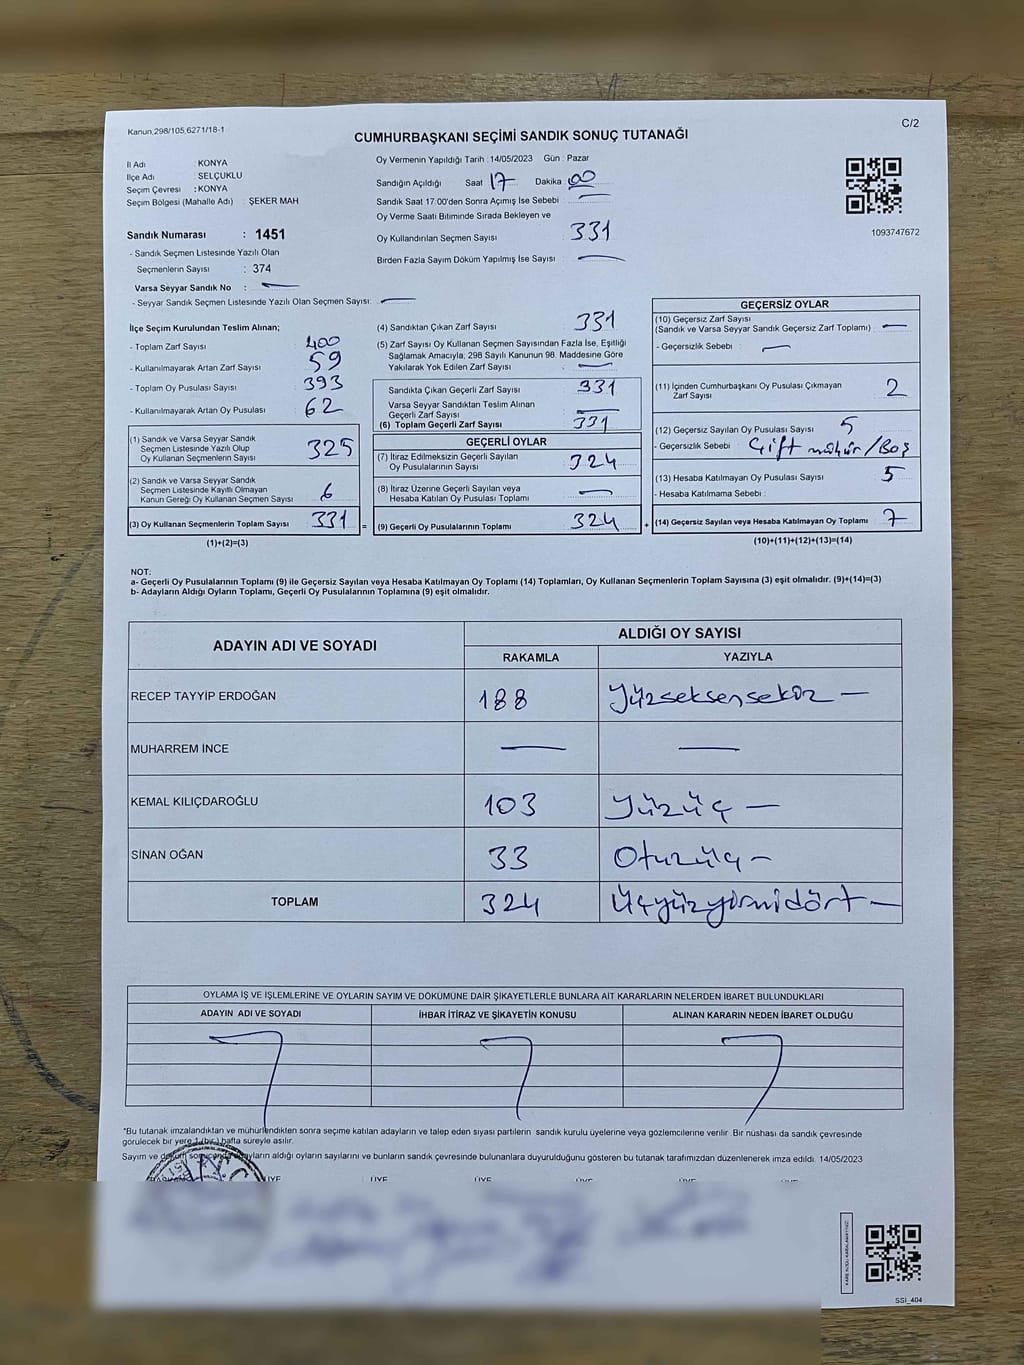 Kanun,298/105,6271/18-1
C/2
CUMHURBAŞKANI SEÇİMİ SANDIK SONUÇ TUTANAĞI
İl Adı : KONYA
İlçe Adı : SELÇUKLU
Seçim Çevresi : KONYA
Seçim Bölgesi (Mahalle Adı) : ŞEKER MAH
Sandık Numarası : 1451
- Sandık Seçmen Listesinde Yazılı Olan
Seçmenlerin Sayısı : 374
Varsa Seyyar Sandık No : —
- Seyyar Sandık Seçmen Listesinde Yazılı Olan Seçmen Sayısı: —
Oy Vermenin Yapıldığı Tarih :14/05/2023 Gün : Pazar
Sandığın Açıldığı Saat 17 Dakika 00
Sandık Saat 17:00'den Sonra Açımış İse Sebebi —
Oy Verme Saati Bitiminde Sırada Bekleyen ve
Oy Kullandırılan Seçmen Sayısı : 331
Birden Fazla Sayım Döküm Yapılmış İse Sayısı : —
1093747672
İlçe Seçim Kurulundan Teslim Alınan;
- Toplam Zarf Sayısı : 400
- Kullanılmayarak Artan Zarf Sayısı : 59
- Toplam Oy Pusulası Sayısı : 393
- Kullanılmayarak Artan Oy Pusulası : 62
(1) Sandık ve Varsa Seyyar Sandık
Seçmen Listesinde Yazılı Olup
Oy Kullanan Seçmenlerin Sayısı : 325
(2) Sandık ve Varsa Seyyar Sandık
Seçmen Listesinde Kayıtlı Olmayan
Kanun Gereği Oy Kullanan Seçmen Sayısı : 6
(3) Oy Kullanan Seçmenlerin Toplam Sayısı : 331 =
(1)+(2)=(3)
(4) Sandıktan Çıkan Zarf Sayısı : 331
(5) Zarf Sayısı Oy Kullanan Seçmen Sayısından Fazla İse, Eşitliği
Sağlamak Amacıyla, 298 Sayılı Kanunun 98. Maddesine Göre
Yakılarak Yok Edilen Zarf Sayısı : —
Sandıkta Çıkan Geçerli Zarf Sayısı : 331
Varsa Seyyar Sandıktan Teslim Alınan
Geçerli Zarf Sayısı : —
(6) Toplam Geçerli Zarf Sayısı : 331
GEÇERLİ OYLAR
(7) İtiraz Edilmeksizin Geçerli Sayılan
Oy Pusulalarının Sayısı : 324
(8) İtiraz Üzerine Geçerli Sayılan veya
Hesaba Katılan Oy Pusulası Toplamı : —
(9) Geçerli Oy Pusulalarının Toplamı : 324 +
GEÇERSİZ OYLAR
(10) Geçersiz Zarf Sayısı :
(Sandık ve Varsa Seyyar Sandık Geçersiz Zarf Toplamı) —
- Geçersizlik Sebebi : —
(11) İçinden Cumhurbaşkanı Oy Pusulası Çıkmayan
Zarf Sayısı : 2
(12) Geçersiz Sayılan Oy Pusulası Sayısı : 5
- Geçersizlik Sebebi : Çift mühür/Boş
(13) Hesaba Katılmayan Oy Pusulası Sayısı : 5
- Hesaba Katılmama Sebebi :
(14) Geçersiz Sayılan veya Hesaba Katılmayan Oy Toplamı : 7
(10)+(11)+(12)+(13)=(14)
NOT:
a- Geçerli Oy Pusulalarının Toplamı (9) ile Geçersiz Sayılan veya Hesaba Katılmayan Oy Toplamı (14) Toplamları, Oy Kullanan Seçmenlerin Toplam Sayısına (3) eşit olmalıdır. (9)+(14)=(3)
b- Adayların Aldığı Oyların Toplamı, Geçerli Oy Pusulalarının Toplamına (9) eşit olmalıdır.
ADAYIN ADI VE SOYADI
ALDIĞI OY SAYISI
RAKAMLA YAZIYLA
RECEP TAYYİP ERDOĞAN 188 Yüzseksensekiz —
MUHARREM İNCE — —
KEMAL KILIÇDAROĞLU 103 Yüzüç —
SİNAN OĞAN 33 Otuzüç —
TOPLAM 324 Üçyüzyirmidört —
OYLAMA İŞ VE İŞLEMLERİNE VE OYLARIN SAYIM VE DÖKÜMÜNE DAİR ŞİKAYETLERLE BUNLARA AİT KARARLARIN NELERDEN İBARET BULUNDUKLARI
ADAYIN ADI VE SOYADI İHBAR İTİRAZ VE ŞİKAYETİN KONUSU ALINAN KARARIN NEDEN İBARET OLDUĞU
*Bu tutanak imzalandıktan ve mühürlendikten sonra seçime katılan adayların ve talep eden siyasi partilerin sandık kurulu üyelerine veya gözlemcilerine verilir. Bir nüshası da sandık çevresinde
görülecek bir yere 1 (bir) hafta süreyle asılır.
Sayım ve döküm sonucunda adayların aldığı oyların sayılarını ve bunların sandık çevresinde bulunanlara duyurulduğunu gösteren bu tutanak tarafımızdan düzenlenerek imza edildi. 14/05/2023
ÜYE ÜYE ÜYE ÜYE ÜYE ÜYE
SSI_404